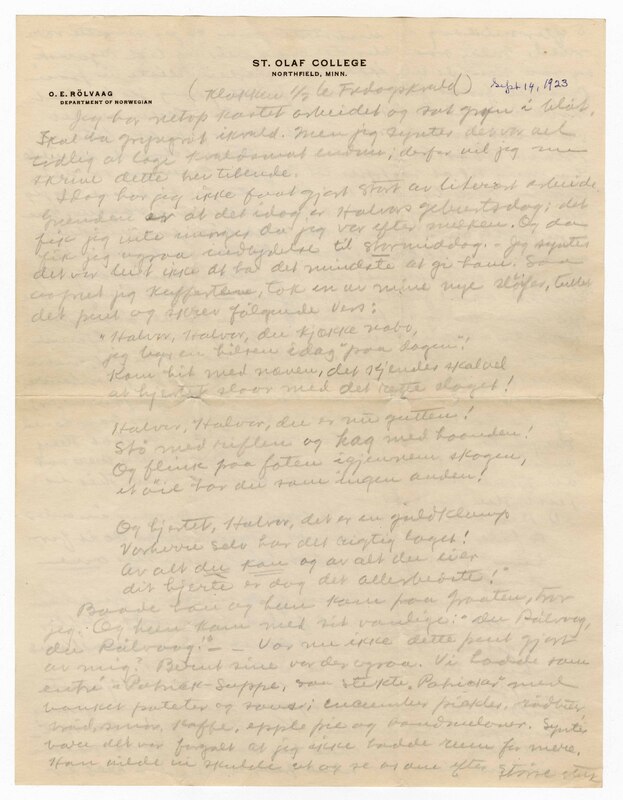 ST. OLAF COLLEGE
NORTHFIELD, MINN.
O. E. RÖLVAAG
DEPARTMENT OF NORWEGIAN
(Klokken ½6 Fredagskveld) Sept 14, 1923
Jeg har netop kastet arbeidet og sat i blæk.
Skal ha ikveld. Men jeg syntes det var vel
tidlig at lage kveldsmat endnu; derfor vil jeg nu
skrive dette her tilende.
Idag har jeg ikke faat gjort stort av literært arbeide.
Grunden er at det idag er Halvors geburtsdag; det
fik jeg vite imorges da jeg var efter melken. Og da
fik jeg ogsaa indbydelse til Stormiddag. – Jeg syntes
det var leit ikke at ha det mindste at gi ham. Saa
jeg kufferten, tok en av mine nye slöifer, tullet
det pent og skrev fölgende vers:
"Halvor, Halvor, du kjække nabo,
jeg har en hilsen idag "paa dagen"!
Kom hit med næven, det kjendes skal vel
at hjertet slaar med det rette slaget!
Halvor, Halvor, du er nu gutten!
Stö med riflen og hag med haanden!
Og flink paa foten igjennem skogen,
et öie har du som ingen anden!
Og hjertet, Halvor, det er en guldklump
Vorherre selv har det rigtig laget!
Av alt du kan og av alt du eier
dit hjerte er dog det allerbedste!"
Baade han og hun kom paa graaten, tror
jeg. Og hun kom med sit vanlige: "du Rölvaag,
du Rölvaag!" – Var nu ikke dette pent gjort
av mig? Vi hadde som
entré "Patrick-Suppe, saa stekte "Patricker" med
banket poteter og saus; cucumber pickles, rödbeter
bröd, smör, kaffe, epple pie og vandmeloner. Syntes
bare det var forgalt at jeg ikke hadde rum for mere.
Han vilde vi skulde ut og se os om efter större dyr